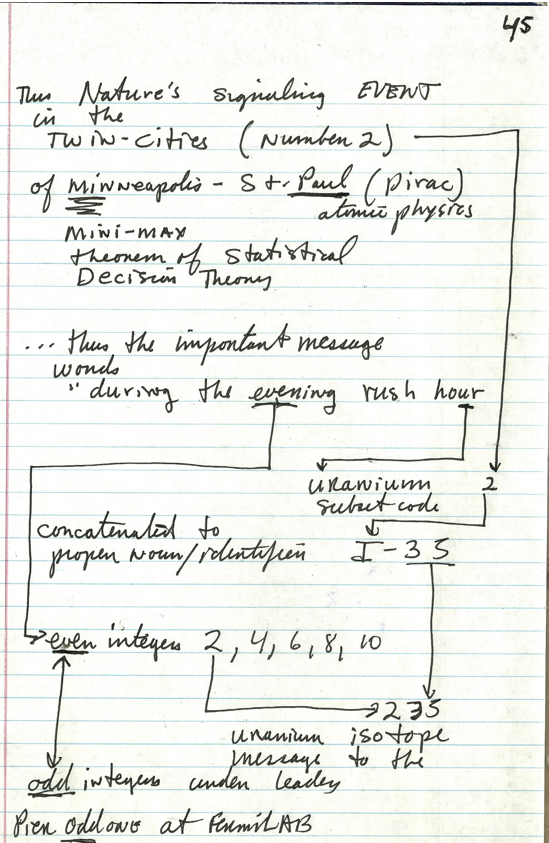 45
Thus Nature's signaling EVENT
in the
TWIN-Cities (Number 2)
of Minneapolis - St. Paul (Dirac)
atomic physics
MINI-MAX
theorem of Statistical
Decision Theory
... thus the important message
words
"during the evening rush hour
uranium 2
subset code
concatenated to
proper noun/identifier I-35
even integers 2, 4, 6, 8, 10
235
uranium isotope
message to the
odd integers under leader
Pier Oddone at FermiLAB